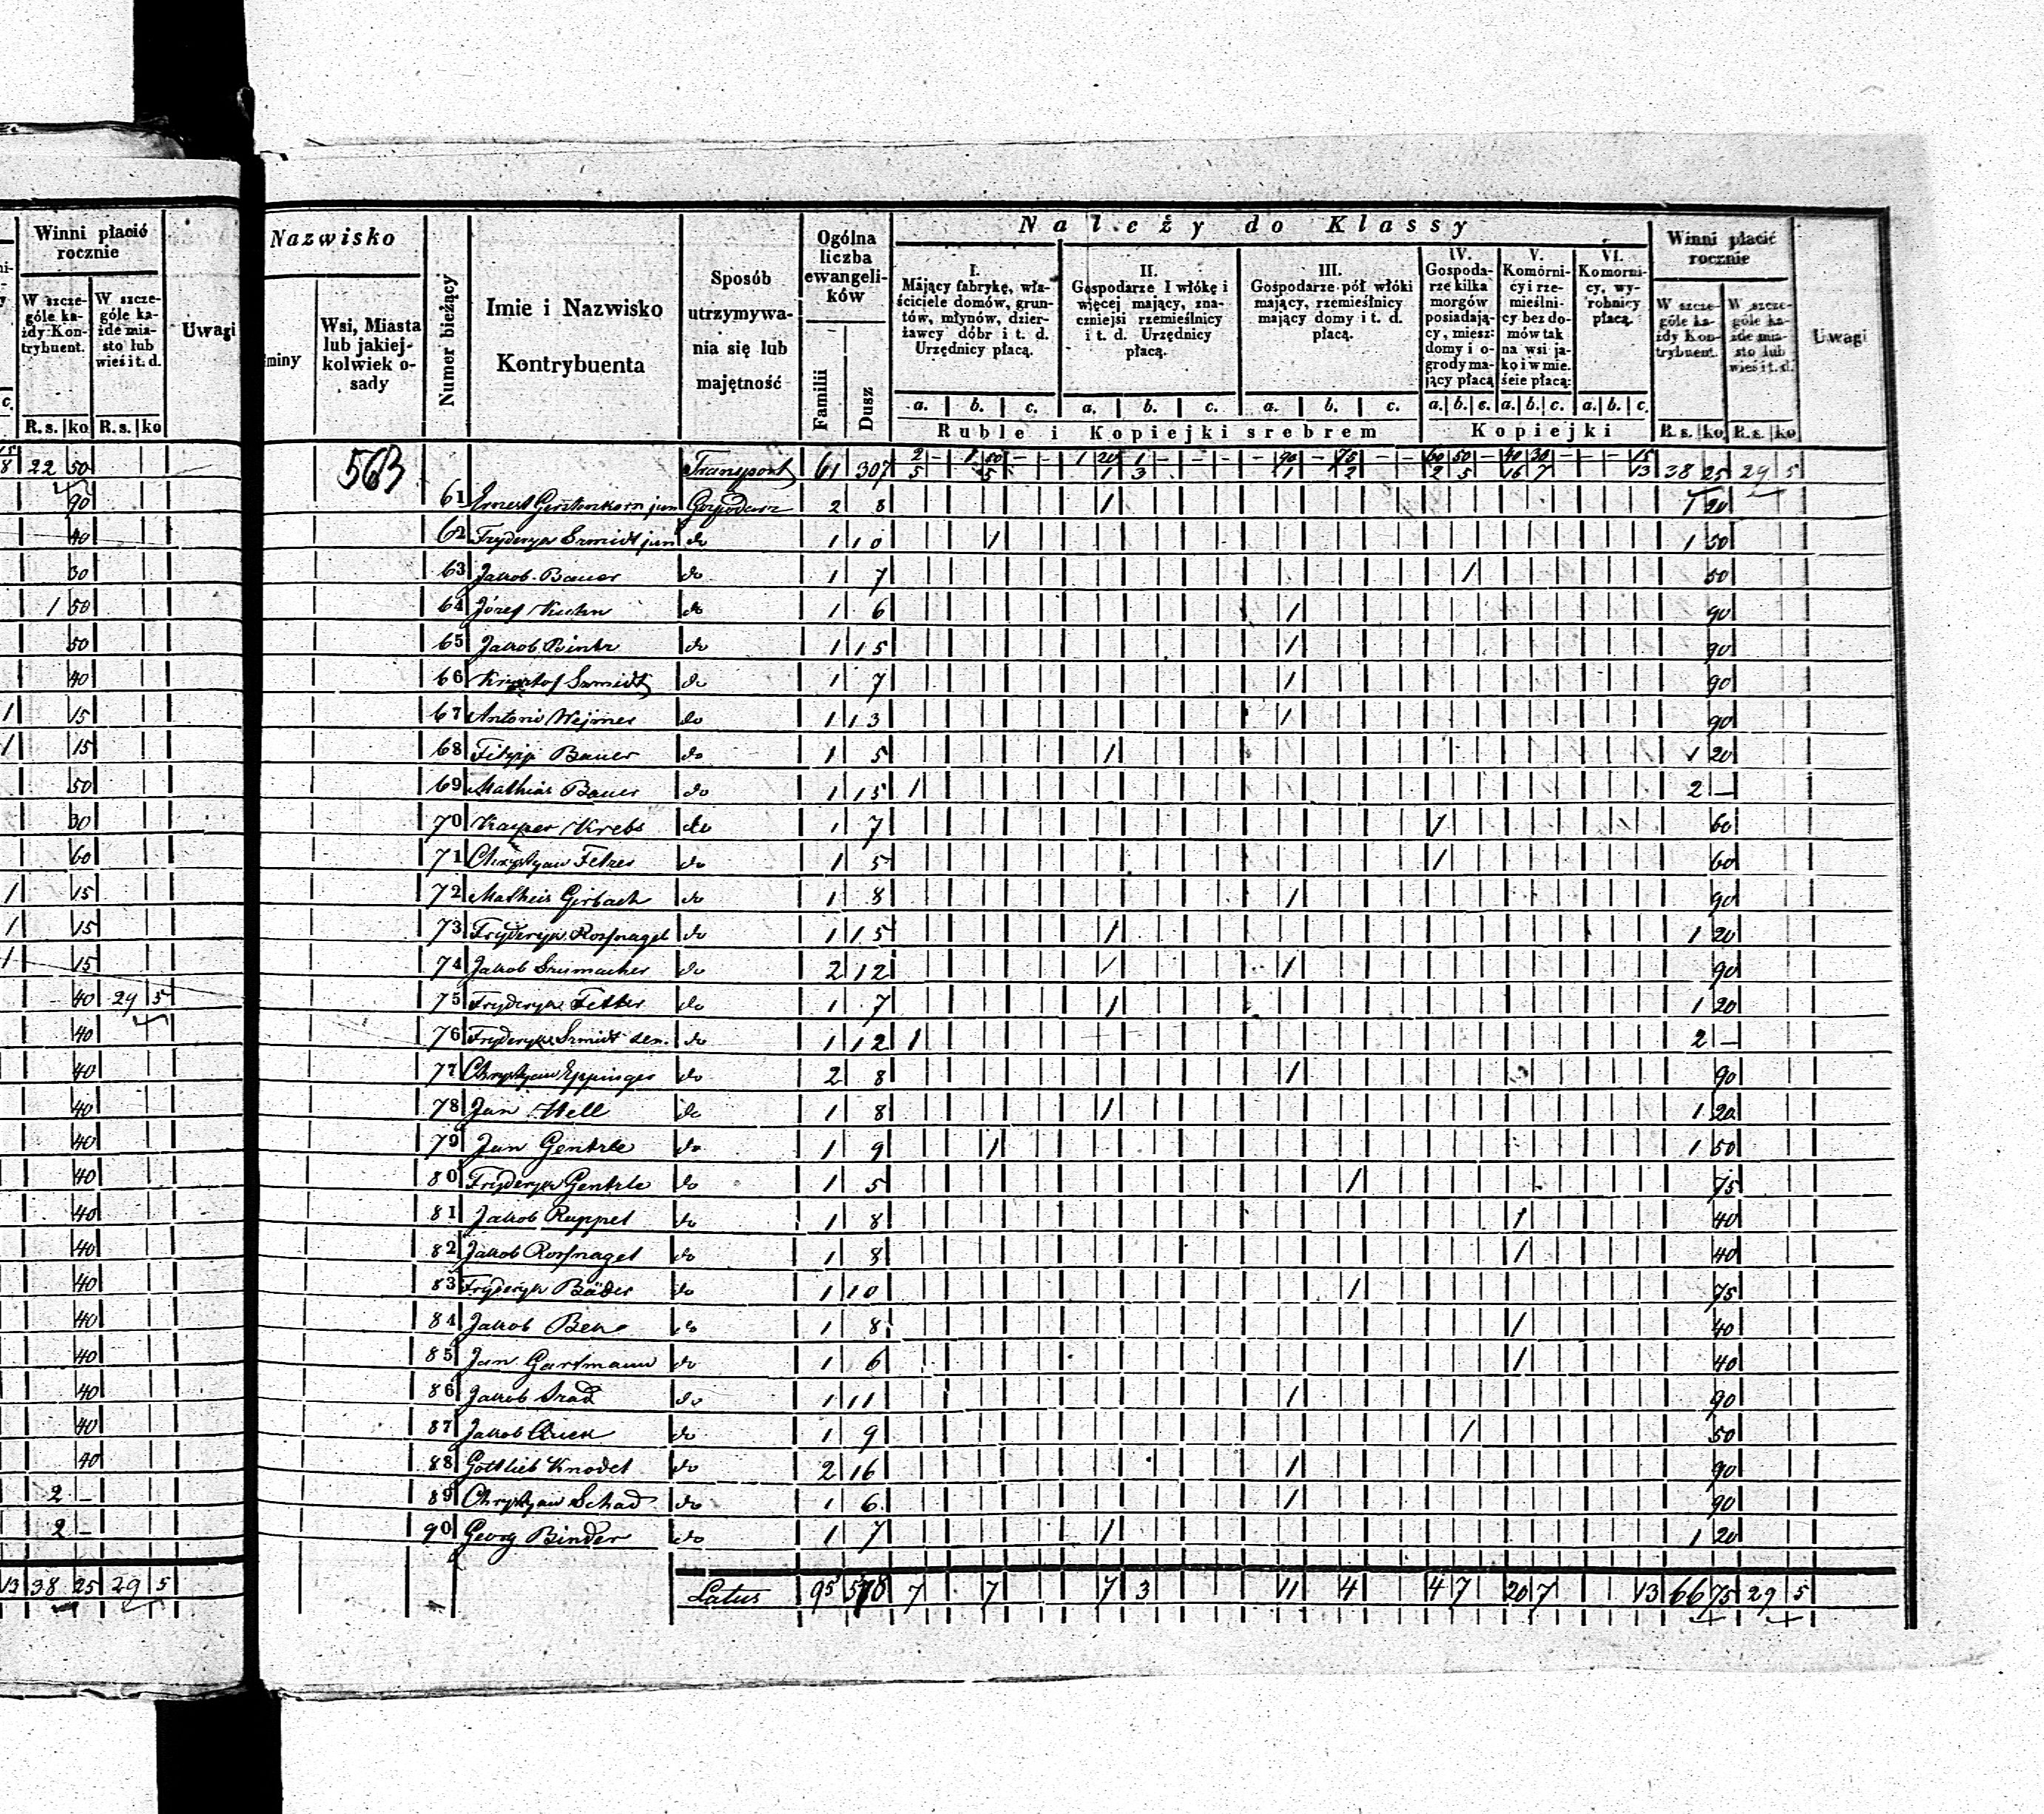 Winni płacić rocznie
W szcze- góle ka- żdy Kon- trybuent.
W szcze- góle ka- żde mia- sto lub wieś i t. d.
Uwagi
c.
R. s. ko R. s. ko
8 22 50
90
40
30
1 50
50
40
1 15
1 15
50
30
60
1 15
1 15
1 15
40 29 5
40
40
40
40
40
40
40
40
40
40
40
40
40
2 –
2 –
13 38 25 29 5
Nazwisko
miny
Wsi, Miasta lub jakiej- kolwiek o- sady
Numer bieżący
Imie i Nazwisko
Kontrybuenta
Sposób utrzymywa- nia się lub majętność
Ogólna liczba ewangeli- ków
Familii Dusz
Należy do Klassy
I. Mający fabrykę, wła- ściciele domów, grun- tów, młynów, dzier- żawcy dóbr i t. d. Urzędnicy płacą.
II. Gospodarze I włókę i więcej mający, zna- czniejsi rzemieślnicy i t. d. Urzędnicy płacą.
III. Gospodarze pół włóki mający, rzemieślnicy mający domy i t. d. płacą.
IV. Gospoda- rze kilka morgów posiadają- cy, miesz: domy i o- grody ma- jący płacą
V. Komorni- cy i rze- mieślni- cy bez do- mów tak na wsi ja- ko i w mie- ście płacą:
VI. Komorni- cy, wy- robnicy płacą.
Winni płacić rocznie
W szcze- góle ka- żdy Kon- trybuent.
W szcze- góle ka- żde mia- sto lub wieś i t. d.
Uwagi
a. b. c. a. b. c. a. b. c. a. b. c. a. b. c. a. b. c.
Ruble i Kopiejki srebrem Kopiejki R. s. ko R. s. ko
2 – 1 50 – – 1 20 1 – – – – 90 – 75 – – 60 50 – 40 30 – – – 15
563 Transport 61 307 5 5 1 3 1 2 2 5 16 7 13 38 25 29 5
61 Ernest Gerstenkorn jun Gospodarz 2 8 1 1 20
62 Fryderyk Szmidt jun do 1 10 1 1 50
63 Jakob Bauer do 1 7 1 50
64 Józef Kuhn do 1 6 1 90
65 Jakob do 1 15 1 90
66 Krysztof Szmidt do 1 7 1 90
67 Antoni Wejmer do 1 13 1 90
68 Filipp Bauer do 1 5 1 1 20
69 Mathias Bauer do 1 15 1 2 –
70 Kasper Krebs do 1 7 1 60
71 Chrystyan do 1 5 1 60
72 Matheis Girbach do 1 8 1 90
73 Fryderyk Rosfnagel do 1 15 1 1 20
74 Jakob Szumacher do 2 12 1 1 90
75 Fryderyk Fetter do 1 7 1 1 20
76 Fryderyk Szmidt sen. do 1 12 1 2 –
77 Chrystyan Eppinger do 2 8 1 90
78 Jan Hell do 1 8 1 1 20
79 Jan Gentzle do 1 9 1 1 50
80 Fryderyk Gentzle do 1 5 1 75
81 Jakob Ruppel do 1 8 1 40
82 Jakob Rosfnagel do 1 8 1 40
83 Fryderyk Bäder do 1 10 1 75
84 Jakob Bek do 1 8 1 40
85 Jan Gartmann do 1 6 1 40
86 Jakob Szad do 1 11 1 90
87 Jakob do 1 9 1 50
88 Gottlieb Knodel do 2 16 1 90
89 Chrystyan Schad do 1 6 1 90
90 Georg Binder do 1 7 1 1 20
Latus 95 578 7 7 7 3 11 4 4 7 20 7 13 66 75 29 5